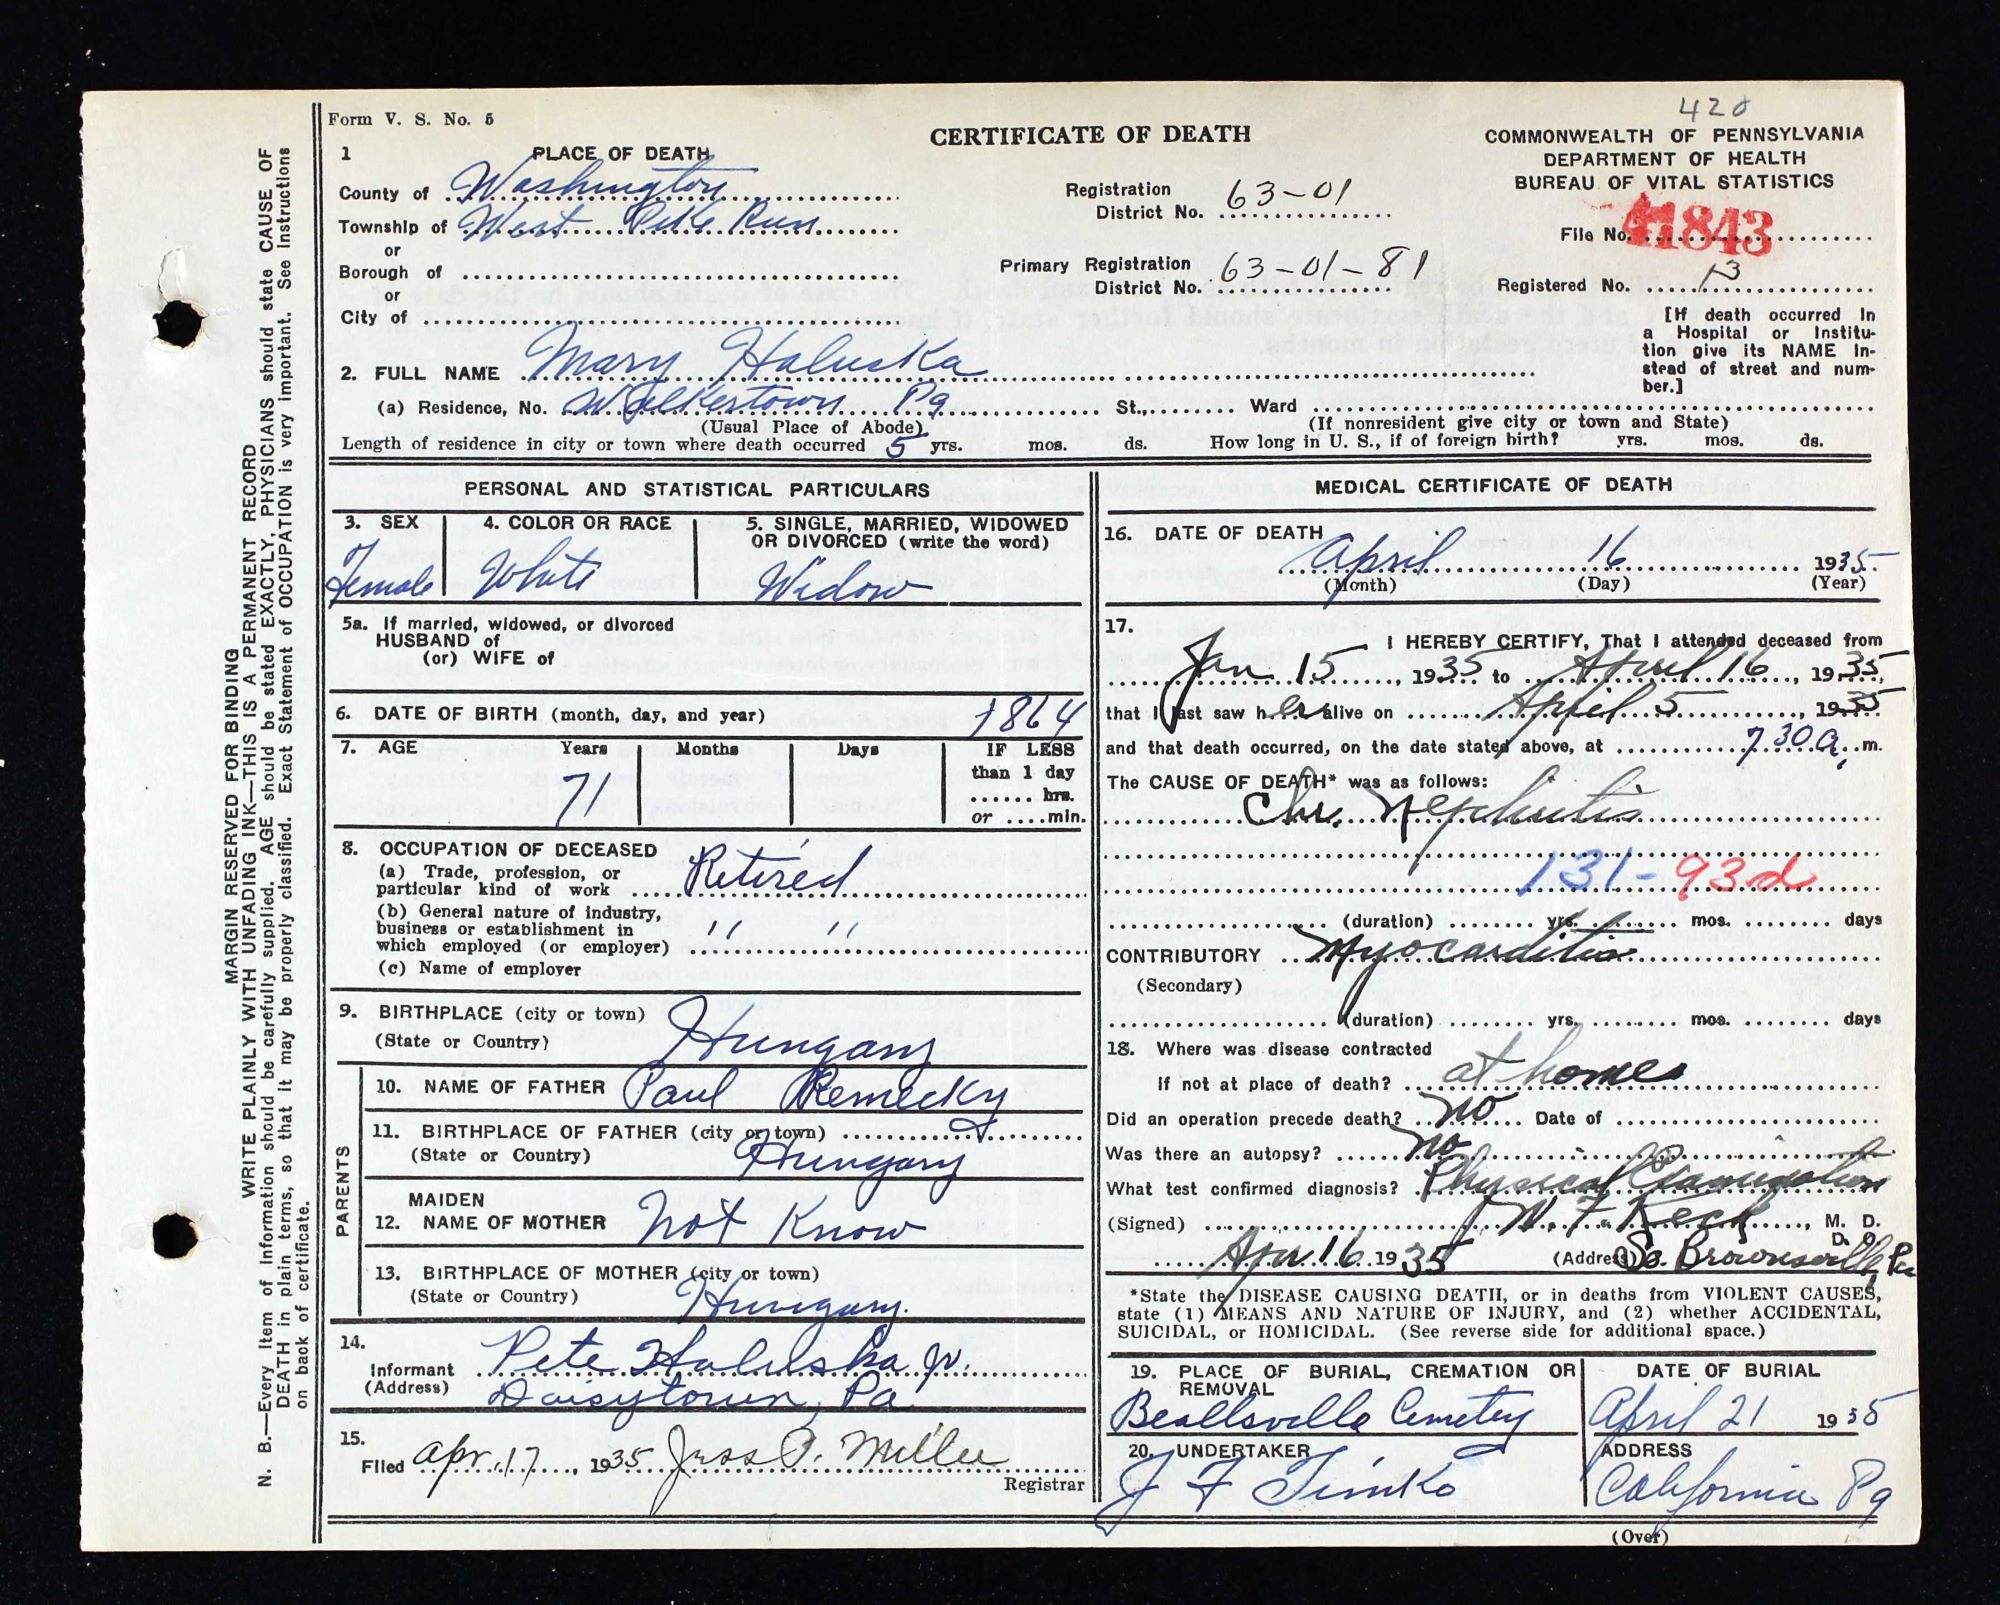 MARGIN RESERVED FOR BINDING
WRITE PLAINLY WITH UNFADING INK—THIS IS A PERMANENT RECORD
N. B.—Every item of information should be carefully supplied. AGE should be stated EXACTLY, PHYSICIANS should state CAUSE OF
DEATH in plain terms, so that it may be properly classified. Exact Statement of OCCUPATION is very important. See instructions
on back of certificate.
Form V. S. No. 5
420
CERTIFICATE OF DEATH
COMMONWEALTH OF PENNSYLVANIA
DEPARTMENT OF HEALTH
BUREAU OF VITAL STATISTICS
1 PLACE OF DEATH
County of Washington
Township of West Pike Run
or
Borough of
or
City of
Registration
District No. 63-01
Primary Registration
District No. 63-01-81
File No. 41843
Registered No. 13
[If death occurred in
a Hospital or Institu-
tion give its NAME in-
stead of street and num-
ber.]
2. FULL NAME Mary Haluska
(a) Residence, No. Walkertown Pa St., Ward
(Usual Place of Abode) (If nonresident give city or town and State)
Length of residence in city or town where death occurred 5 yrs. mos. ds. How long in U. S., if of foreign birth? yrs. mos. ds.
PERSONAL AND STATISTICAL PARTICULARS
3. SEX
Female
4. COLOR OR RACE
White
5. SINGLE, MARRIED, WIDOWED
OR DIVORCED (write the word)
Widow
5a. If married, widowed, or divorced
HUSBAND of
(or) WIFE of
6. DATE OF BIRTH (month, day, and year) 1864
7. AGE Years Months Days IF LESS
than 1 day
hrs.
or min.
71
8. OCCUPATION OF DECEASED
(a) Trade, profession, or
particular kind of work Retired
(b) General nature of industry,
business or establishment in
which employed (or employer) " "
(c) Name of employer
9. BIRTHPLACE (city or town)
(State or Country) Hungary
PARENTS
10. NAME OF FATHER Paul Remecky
11. BIRTHPLACE OF FATHER (city or town)
(State or Country) Hungary
MAIDEN
12. NAME OF MOTHER Not Know
13. BIRTHPLACE OF MOTHER (city or town)
(State or Country) Hungary.
14.
Informant Pete Haluska Jr.
(Address) Daisytown, Pa
15.
Filed Apr. 17, 1935 Jess P. Miller
Registrar
MEDICAL CERTIFICATE OF DEATH
16. DATE OF DEATH
April 16 1935
(Month) (Day) (Year)
17. I HEREBY CERTIFY, That I attended deceased from
Jan 15, 1935 to April 16, 1935,
that I last saw her alive on April 5, 1935
and that death occurred, on the date stated above, at 7.30 a. m.
The CAUSE OF DEATH* was as follows:
Chr. Nephritis
131- 93d
(duration) yrs. mos. days
CONTRIBUTORY Myocarditis
(Secondary)
(duration) yrs. mos. days
18. Where was disease contracted
if not at place of death? at home
Did an operation precede death? No Date of
Was there an autopsy? No
What test confirmed diagnosis? Physical Examination
(Signed) W. F. Keck, M. D.
D. O.
Apr 16 1935 (Address) So. Brownsville, Pa
*State the DISEASE CAUSING DEATH, or in deaths from VIOLENT CAUSES,
state (1) MEANS AND NATURE OF INJURY, and (2) whether ACCIDENTAL,
SUICIDAL, or HOMICIDAL. (See reverse side for additional space.)
19. PLACE OF BURIAL, CREMATION OR
REMOVAL
Beallsville Cemetery
DATE OF BURIAL
April 21 1935
20. UNDERTAKER
J F Timko
ADDRESS
California Pa
(Over)